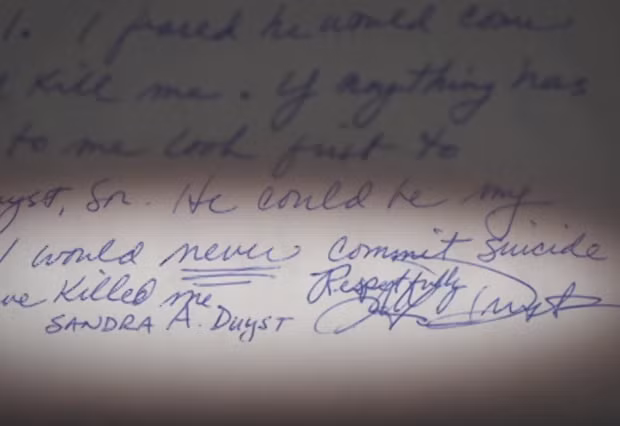 I feared he would come
Kill me. If anything has
to me look first to
uyst, Sr. He could be my
I would never commit suicide
ve Killed me Respectfully
SANDRA A. Duyst